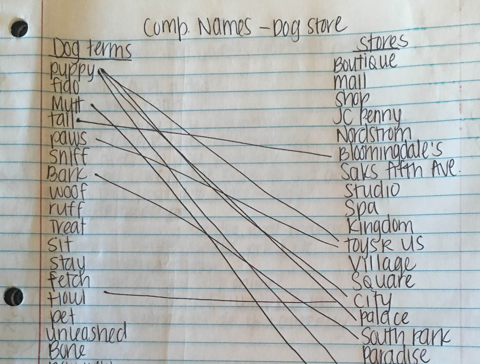 Comp. Names - Dog store
Dog terms
puppy
fido
Mutt
tail
paws
sniff
Bark
woof
ruff
Treat
sit
stay
fetch
Howl
pet
unleashed
Bone
Stores
Boutique
mall
shop
JC Penny
Nordstrom
Bloomingdale's
Saks fifth Ave.
Studio
Spa
Kingdom
toys R us
Village
Square
City
Palace
South Park
Paradise